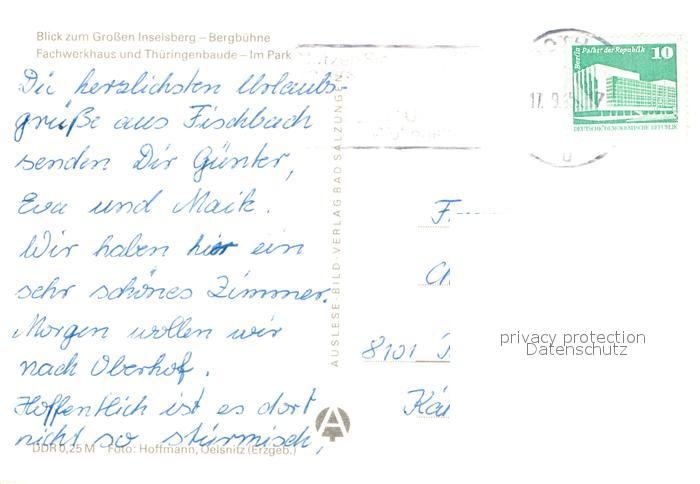 Blick zum Großen Inselsberg – Bergbühne
Fachwerkhaus und Thüringenbaude – Im Park
Die herzlichsten Urlaubs-
grüße aus Fischbach
senden Dir Günter,
Eva und Maik.
Wir haben hier ein
sehr schönes Zimmer.
Morgen wollen wir
nach Oberhof.
Hoffentlich ist es dort
nicht so stürmisch,
DDR 0,25 M Foto: Hoffmann, Oelsnitz (Erzgeb.)
AUSLESE-BILD-VERLAG BAD SALZUNGEN
17. 9.
u
Berlin Palast der Republik 10
DEUTSCHE DEMOKRATISCHE REPUBLIK
F
8101
privacy protection
Datenschutz